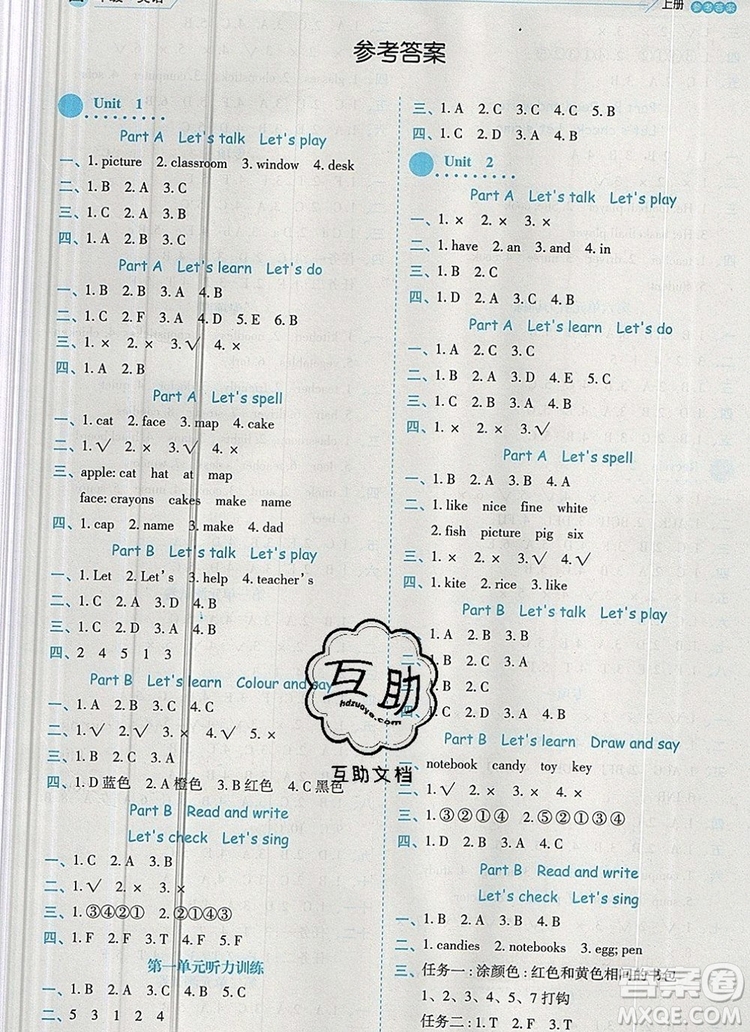 上册 参考答案
参考答案
Unit 1
Part A Let's talk Let's play
一、1. picture 2. classroom 3. window 4. desk
二、1. B 2. A 3. C
三、1. C 2. A 3. B
四、1. A 2. B 3. A
Part A Let's learn Let's do
一、1. B 2. B 3. A 4. B
二、1. C 2. F 3. A 4. D 5. E 6. B
三、1. × 2. × 3. √ 4. ×
四、1. A 2. B
Part A Let's spell
一、1. cat 2. face 3. map 4. cake
二、1. √ 2. × 3. √ 4. ×
三、apple: cat hat at map
face: crayons cakes make name
四、1. cap 2. name 3. make 4. dad
Part B Let's talk Let's play
一、1. Let 2. Let's 3. help 4. teacher's
二、1. C 2. A 3. D 4. B
三、1. D 2. C 3. A 4. B
四、2 4 5 1 3
Part B Let's learn Colour and say
一、1. A 2. B 3. C 4. C
二、1. √ 2. × 3. × 4. √
三、1. B 2. A 3. B
四、1. D 蓝色 2. A 橙色 3. B 红色 4. C 黑色
Part B Read and write
Let's check Let's sing
一、1. C 2. A 3. B
二、1. √ 2. × 3. ×
三、1. ③④②① 2. ②①④③
四、1. F 2. F 3. T 4. F 5. F
第一单元听力训练
一、1. B 2. A 3. B 4. A 5. B
二、5 3 1 2 4
三、1. A 2. C 3. C 4. C 5. B
四、1. C 2. D 3. A 4. B
Unit 2
Part A Let's talk Let's play
一、1. × 2. × 3. ×
二、1. have 2. an 3. and 4. in
三、1. B 2. A 3. B
四、1. D 2. A 3. C 4. B
Part A Let's learn Let's do
一、1. A 2. C 3. C
二、1. C 2. B 3. D 4. E 5. A
三、1. C 2. B 3. A 4. B
四、1. × 2. × 3. √ 4. √
Part A Let's spell
一、1. B 2. A 3. B 4. A 5. B
二、1. like nice fine white
2. fish picture pig six
三、1. × 2. × 3. √ 4. √
四、1. kite 2. rice 3. like
Part B Let's talk Let's play
一、1. B 2. B 3. A 4. A
二、1. C 2. A 3. B
三、1. × 2. √ 3. ×
四、1. C 2. D 3. A 4. B
Part B Let's learn Draw and say
一、notebook candy toy key
二、1. B 2. A 3. B 4. A
三、1. ③②①④ 2. ⑤②①③④
四、1. C 2. B 3. A
Part B Read and write
Let's check Let's sing
一、1. C 2. A 3. D 4. B
二、1. candies 2. notebooks 3. egg; pen
三、任务一：涂颜色：红色和黄色相间的书包
1、2、3、4、5、7 打钩
任务二：1. F 2. T 3. T 4. F
互助
hdzuoye.com
互助文档
答案圈
MXQE.COM